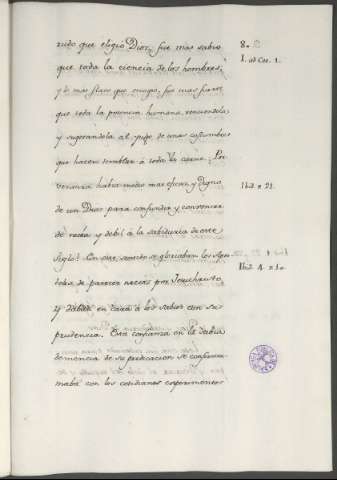 rudo que eligió Dios, fue mas sabio
que toda la ciencia de los hombres;
y lo mas flaco que escogio, fue mas fuerte
que toda la potencia humana, venciendola
y sugetandola al yugo de unas costumbres
que hacen temblar à toda la carne. Por
ventura habia medio mas eficaz y digno
de un Dios para confundir y convencer
de necia y debil à la sabiduria de este
siglo? Con este, se gloriaban los Apos
toles de parecer necios por Jesuchristo
y daban en cara à los sabios con su
prudencia. Esta confianza en la sabia
demencia de su predicacion se confirma
maba con los cotidianos experimentos
8.
I. ad Cor. 1.
Ibid. v. 21.
Ibid. 4. v. 10.